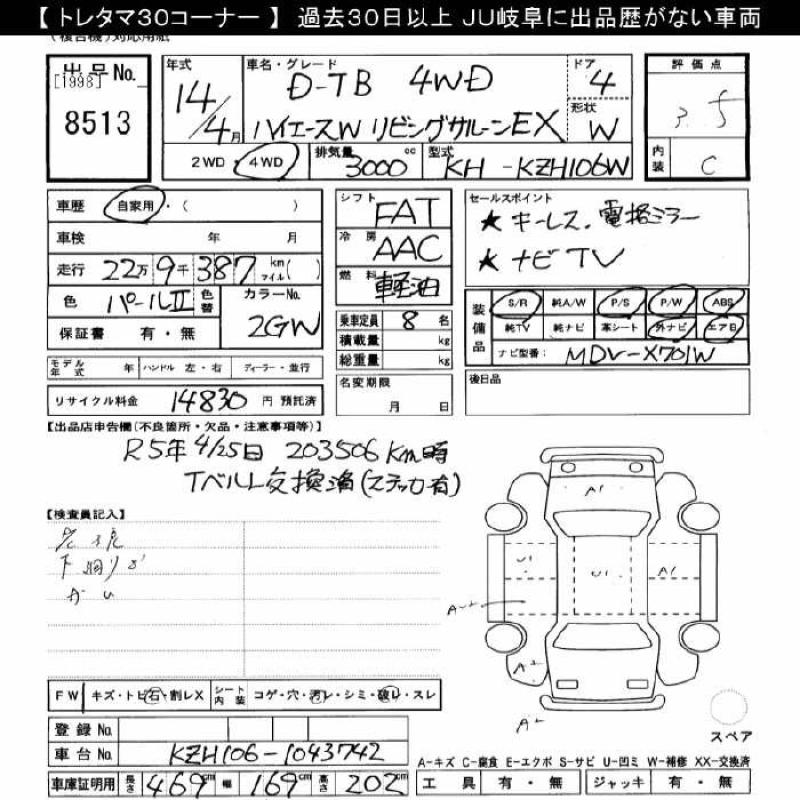 【 トレタマ30コーナー 】 過去30日以上 JU岐阜に出品歴がない車両
(複合機)対応用紙
出品No.
[1998]
8513
年式
14/4月
車名・グレード
D-TB 4WD
ハイエースW リビングサルーンEX
ドア
4
形状
W
評価点
3.5
内装 C
2WD・4WD
排気量 3000cc
型式 KH-KZH106W
車歴 自家用・( )
車検 年 月
走行 22万9千387km マイル( )
色 パールII 色替
カラーNo.
2GW
保証書 有・無
シフト FAT
冷房 AAC
燃料 軽油
乗車定員 8名
積載量 kg
総重量 kg
名変期限
月 日
セールスポイント
★キーレス、電格ミラー
★ナビTV
装備品
S/R 純A/W P/S P/W ABS
純TV 純ナビ 革シート 外ナビ エアB
ナビ型番: MDV-X701W
後日品
モデル年式 年 ハンドル 左・右 ディーラー・並行
リサイクル料金 14830円 預託済
【出品店申告欄(不良箇所・欠品・注意事項等)】
R5年4/25日 203506Km時
Tベルト交換済(ステッカ有)
【検査員記入】
下廻りサビ
FW キズ・トビ石・割レX
シート内装 コゲ・穴・汚レ・シミ・破レ・スレ
登録No.
車台No. KZH106-1043742
車庫証明用 長さ 469cm 幅 169cm 高さ 202cm
A1
U1
U1
A1
A2
A2
スペア
A-キズ C-腐食 E-エクボ S-サビ U-凹ミ W-補修 XX-交換済
工具 有・無 ジャッキ 有・無